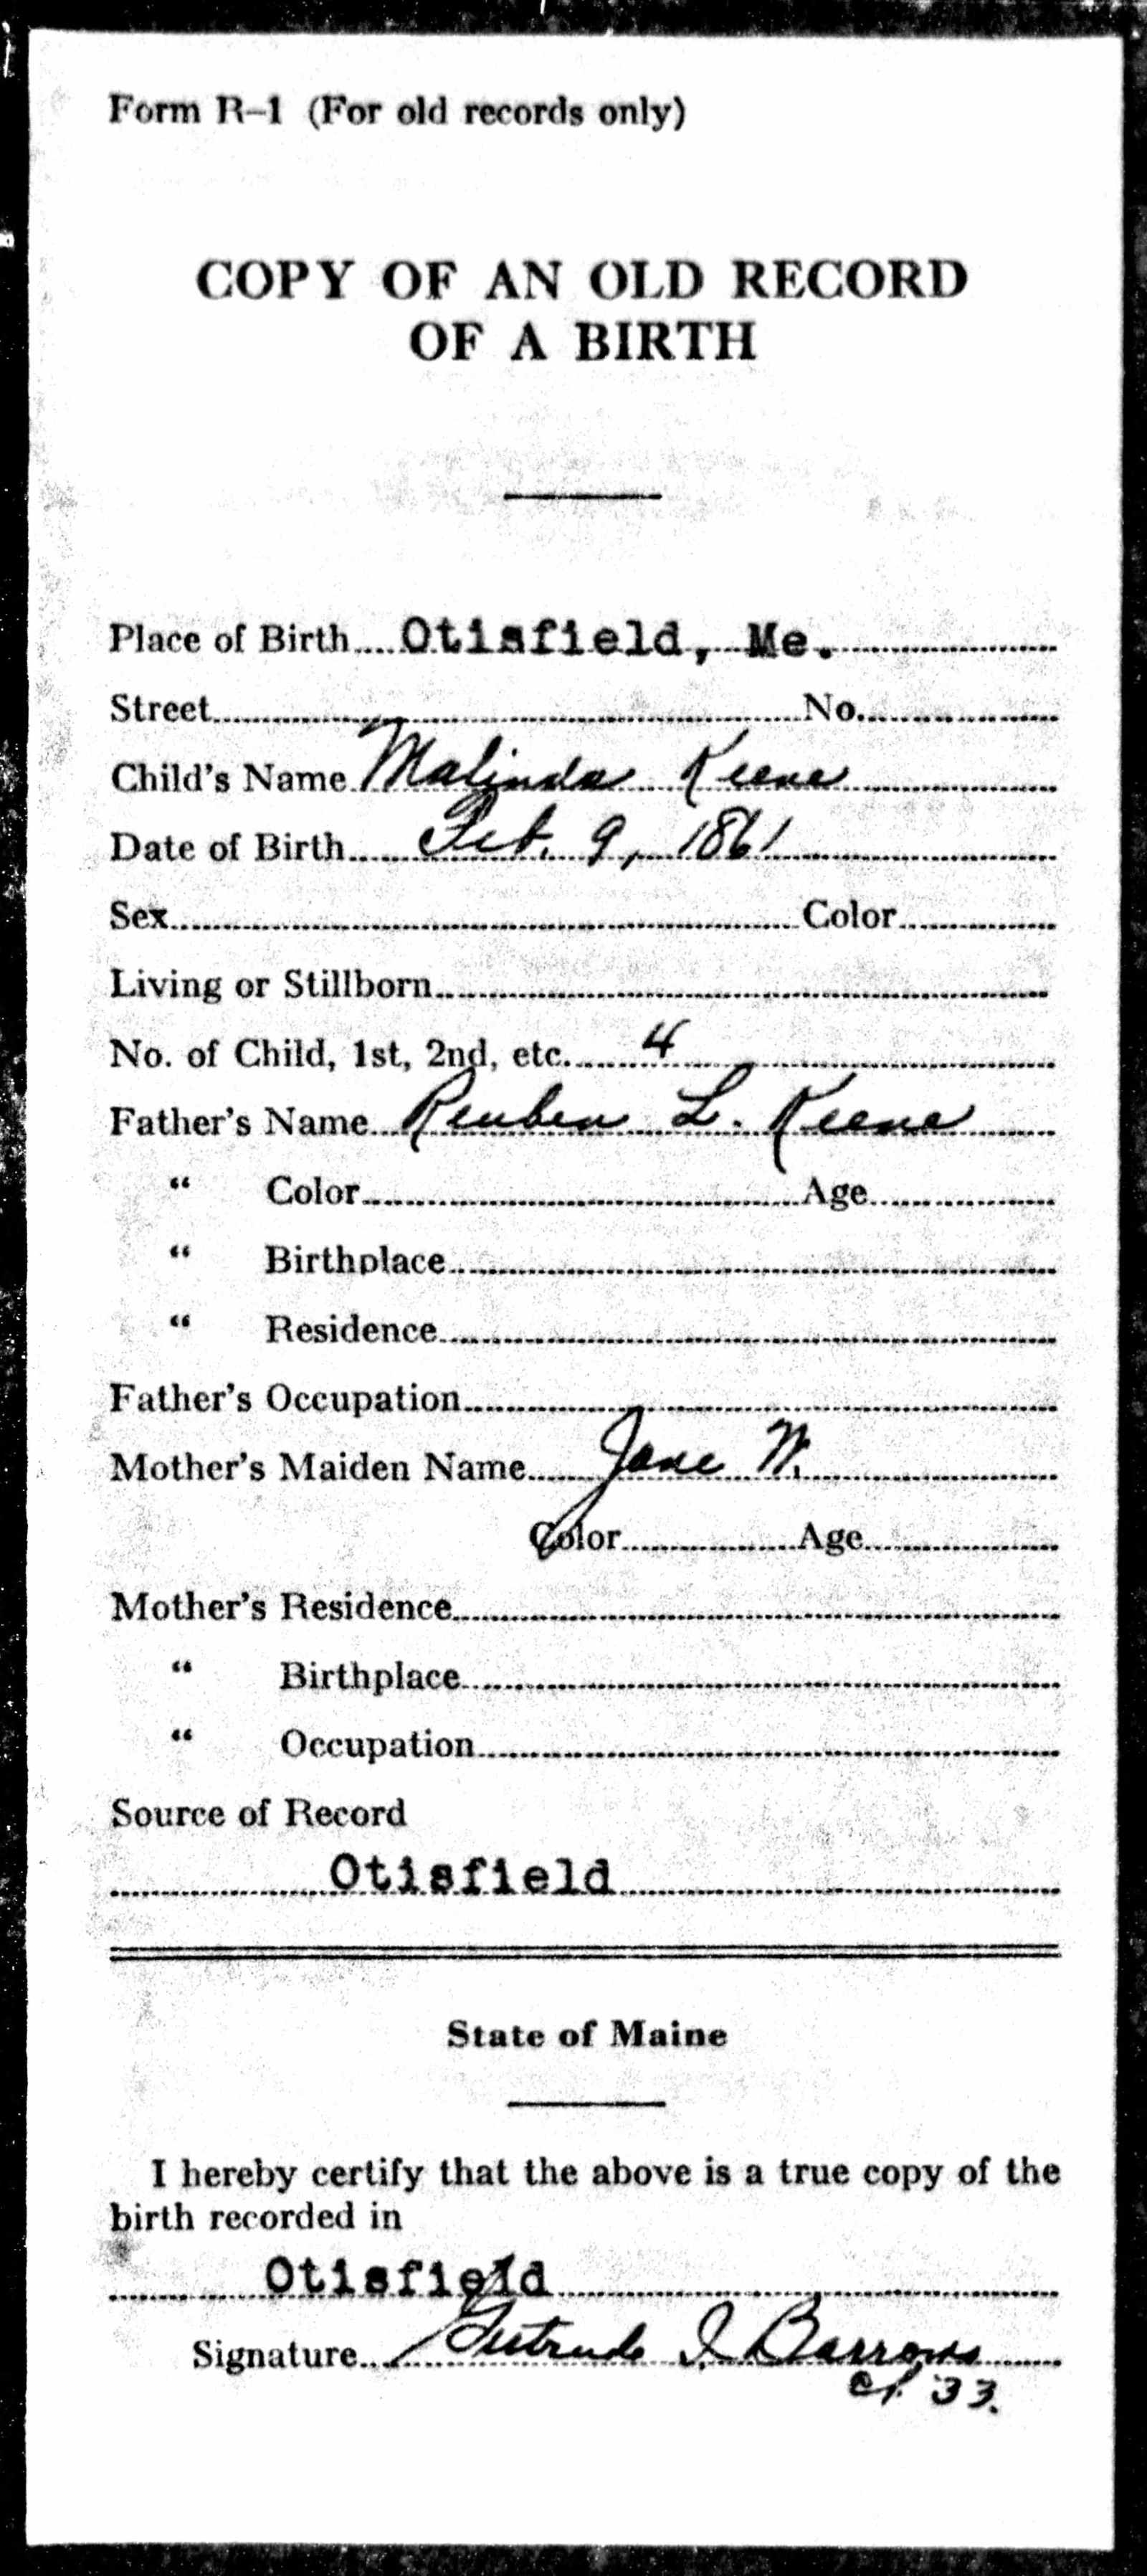 Form R-1 (For old records only)
COPY OF AN OLD RECORD
OF A BIRTH
Place of Birth Otisfield, Me.
Street No.
Child's Name Malinda Keene
Date of Birth Feb. 9, 1861
Sex Color
Living or Stillborn
No. of Child, 1st, 2nd, etc. 4
Father's Name Reuben L. Keene
" Color Age
" Birthplace
" Residence
Father's Occupation
Mother's Maiden Name Jane W.
Color Age
Mother's Residence
" Birthplace
" Occupation
Source of Record
Otisfield
State of Maine
I hereby certify that the above is a true copy of the
birth recorded in
Otisfield
Signature Gertrude I. Barrows
33.